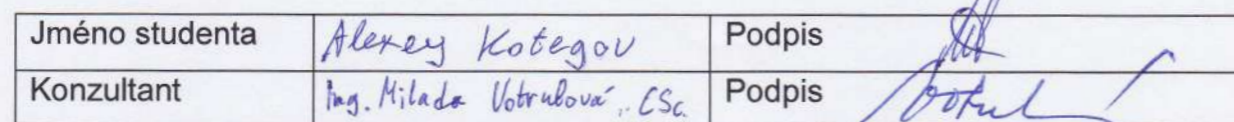 Jméno studenta Alexey Kotegov Podpis
Konzultant Ing. Milada Votrubová, CSc. Podpis